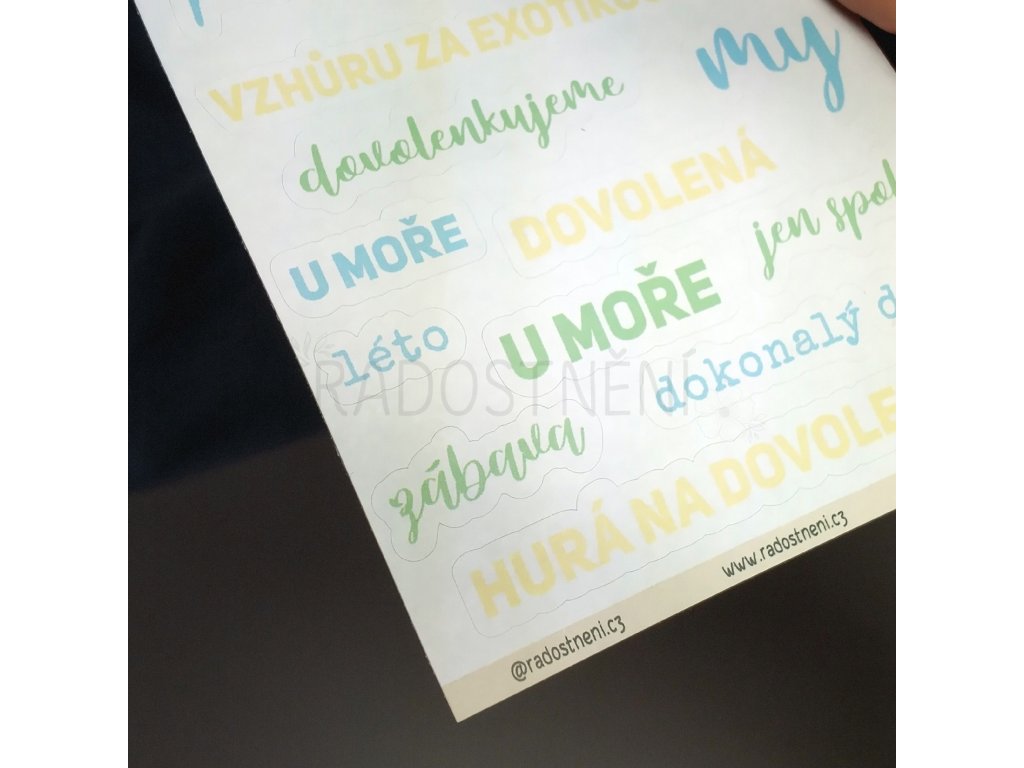 VZHŮRU ZA
my
dovolenkujeme
DOVOLENÁ
U MOŘE
jen
U MOŘE
léto
dokonalý
RADOSTNĚNÍ
zábava
HURÁ NA
www.radostneni.cz
@radostneni.cz